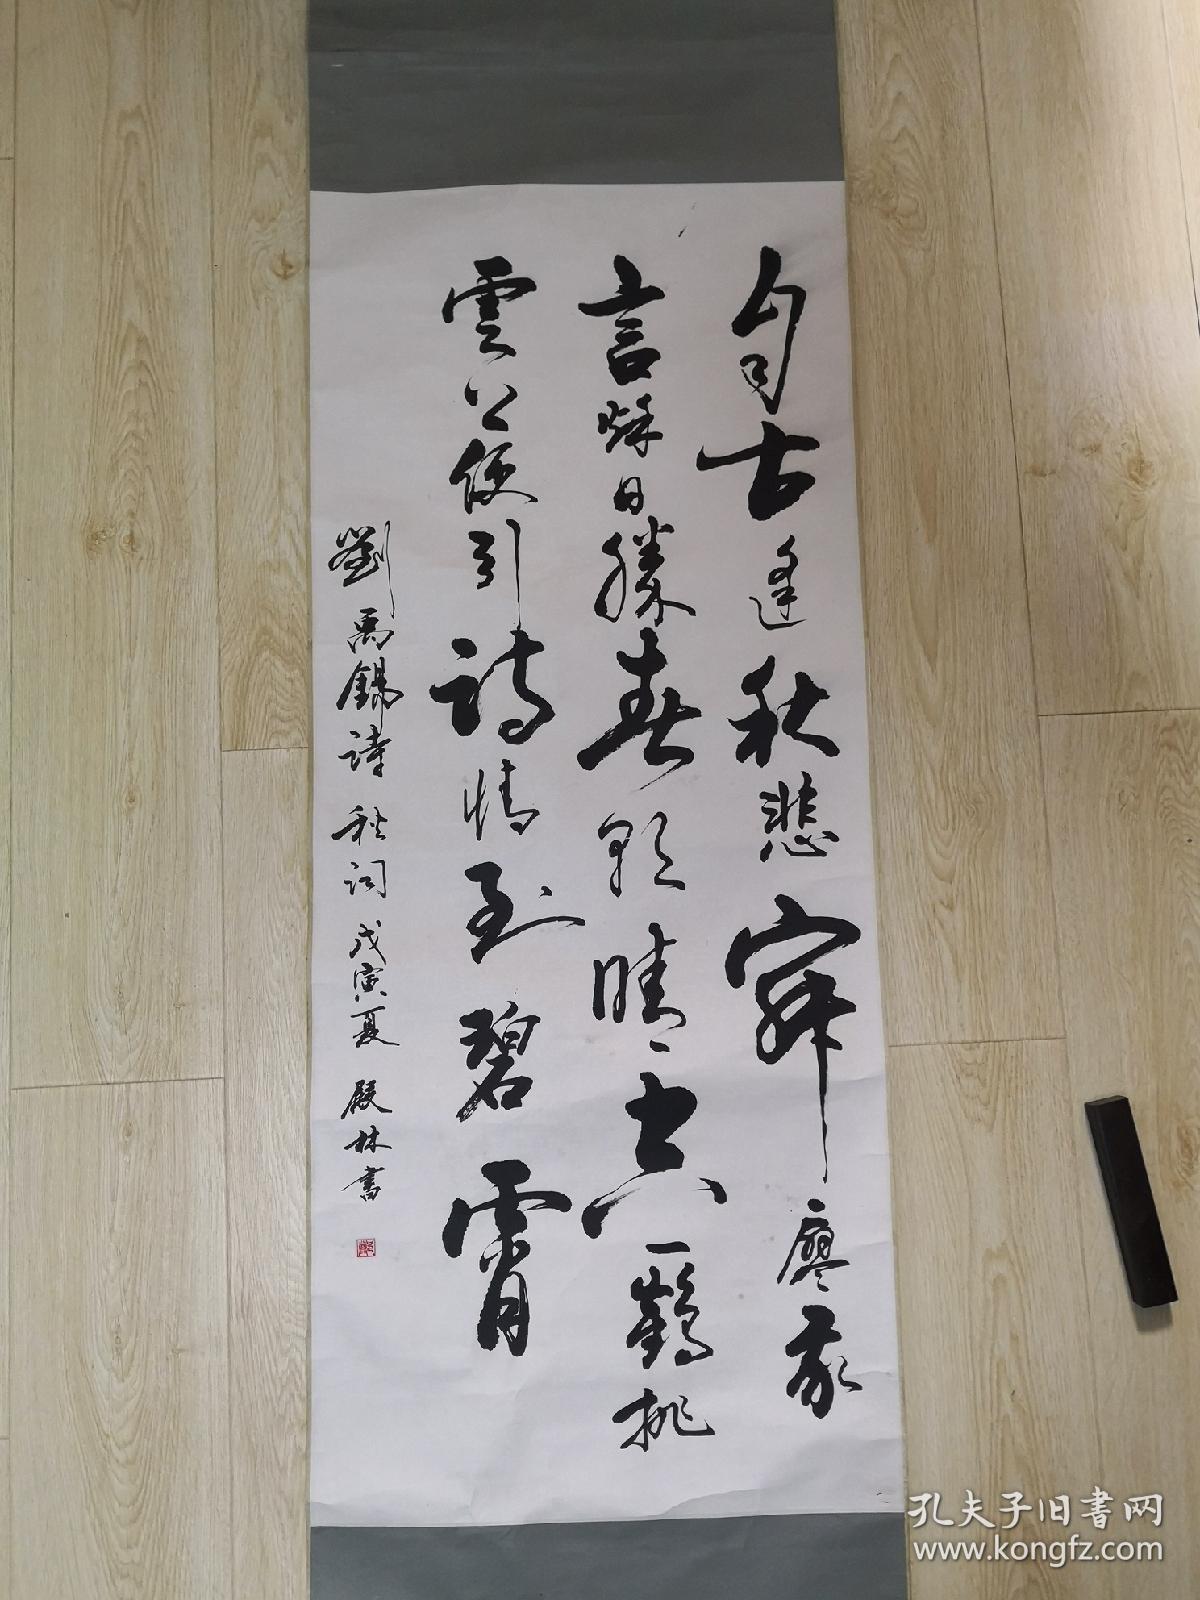 自古逢秋悲寂廖我
言秋日勝春朝晴空一鶴排
雲上便引詩情到碧霄
劉禹錫詩 秋詞 戊寅夏 殿林書
孔夫子旧书网
www.kongfz.com